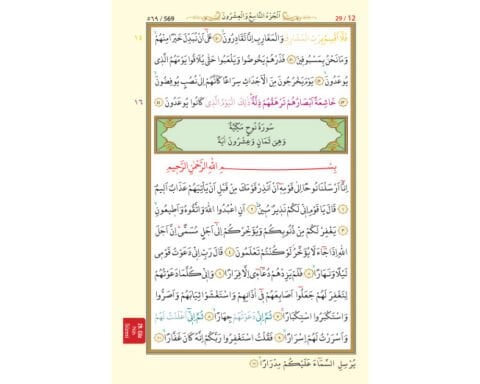 ٥٦٩/ 569 اَلْجُزْءُ التَّاسِعُ وَالْعِشْرُونَ 29 / 12
فَلَٓا اُقْسِمُ بِرَبِّ الْمَشَارِقِ وَالْمَغَارِبِ اِنَّا لَقَادِرُونَۙ ﴿٤٠﴾ عَلٰٓى اَنْ نُبَدِّلَ خَيْرًا مِنْهُمْۙ
وَمَا نَحْنُ بِمَسْبُوق۪ينَ ﴿٤١﴾ فَذَرْهُمْ يَخُوضُوا وَيَلْعَبُوا حَتّٰى يُلَاقُوا يَوْمَهُمُ الَّذ۪ي
يُوعَدُونَۙ ﴿٤٢﴾ يَوْمَ يَخْرُجُونَ مِنَ الْاَجْدَاثِ سِرَاعًا كَاَنَّهُمْ اِلٰى نُصُبٍ يُوفِضُونَۙ
﴿٤٣﴾ خَاشِعَةً اَبْصَارُهُمْ تَرْهَقُهُمْ ذِلَّةٌۜ ذٰلِكَ الْيَوْمُ الَّذ۪ي كَانُوا يُوعَدُونَ ﴿٤٤﴾
١٦
سُورَةُ نُوحٍ مَكِّيَّةٌ
وَهِيَ ثَمَانٍ وَعِشْرُونَ اٰيَةً
بِسْمِ اللّٰهِ الرَّحْمٰنِ الرَّح۪يمِ
اِنَّٓا اَرْسَلْنَا نُوحًا اِلٰى قَوْمِه۪ٓ اَنْ اَنْذِرْ قَوْمَكَ مِنْ قَبْلِ اَنْ يَأْتِيَهُمْ عَذَابٌ اَل۪يمٌ
﴿١﴾ قَالَ يَا قَوْمِ اِنّ۪ي لَكُمْ نَذ۪يرٌ مُب۪ينٌۙ ﴿٢﴾ اَنِ اعْبُدُوا اللّٰهَ وَاتَّقُوهُ وَاَط۪يعُونِۙ
﴿٣﴾ يَغْفِرْ لَكُمْ مِنْ ذُنُوبِكُمْ وَيُؤَخِّرْكُمْ اِلٰٓى اَجَلٍ مُسَمًّىۜ اِنَّ اَجَلَ
اللّٰهِ اِذَا جَٓاءَ لَا يُؤَخَّرُۢ لَوْ كُنْتُمْ تَعْلَمُونَ ﴿٤﴾ قَالَ رَبِّ اِنّ۪ي دَعَوْتُ قَوْم۪ي
لَيْلًا وَنَهَارًاۙ ﴿٥﴾ فَلَمْ يَزِدْهُمْ دُعَٓاء۪ٓي اِلَّا فِرَارًا ﴿٦﴾ وَاِنّ۪ي كُلَّمَا دَعَوْتُهُمْ
لِتَغْفِرَ لَهُمْ جَعَلُٓوا اَصَابِعَهُمْ ف۪ٓي اٰذَانِهِمْ وَاسْتَغْشَوْا ثِيَابَهُمْ وَاَصَرُّوا
وَاسْتَكْبَرُوا اسْتِكْبَارًاۚ ﴿٧﴾ ثُمَّ اِنّ۪ي دَعَوْتُهُمْ جِهَارًاۙ ﴿٨﴾ ثُمَّ اِنّ۪ٓي اَعْلَنْتُ لَهُمْ
وَاَسْرَرْتُ لَهُمْ اِسْرَارًاۙ ﴿٩﴾ فَقُلْتُ اسْتَغْفِرُوا رَبَّكُمْ اِنَّهُ كَانَ غَفَّارًاۙ ﴿١٠﴾
يُرْسِلِ السَّمَٓاءَ عَلَيْكُمْ مِدْرَارًاۙ